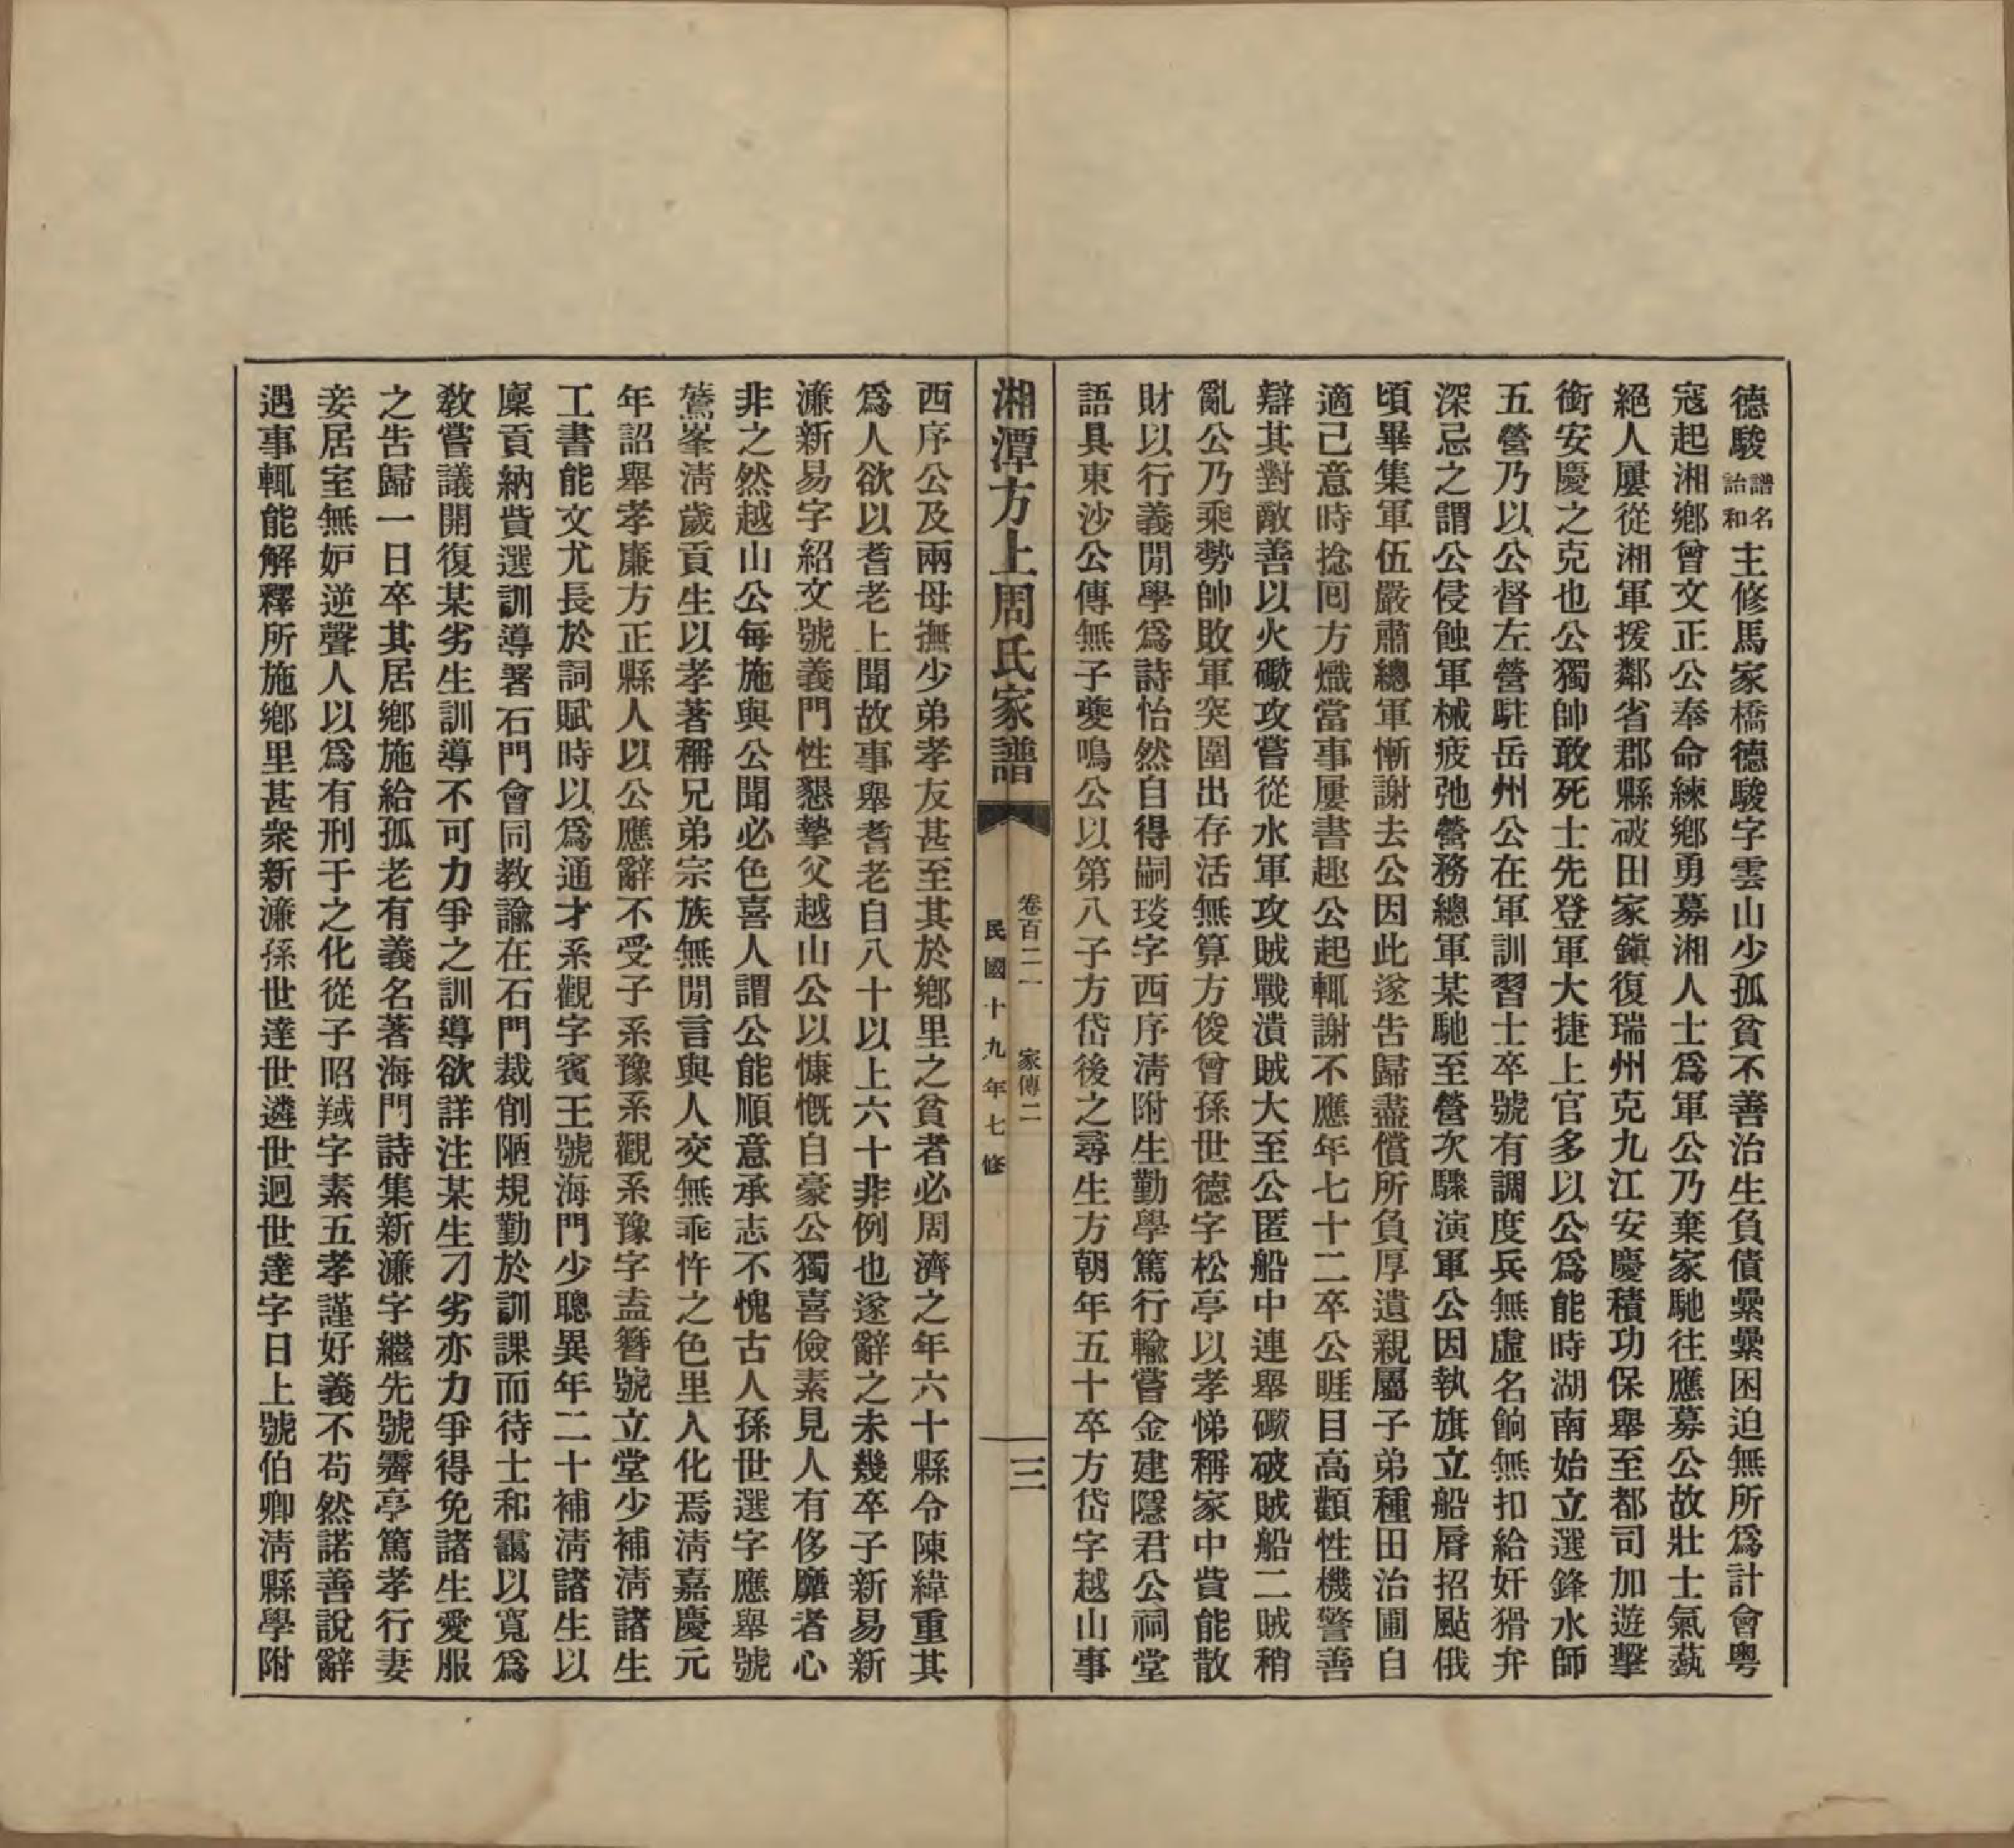 德駿譜名詒和主修馬家橋德駿字雲山少孤貧不善治生負債纍纍困迫無所爲計會粵
寇起湘鄉曾文正公奉命練鄉勇募湘人士爲軍公乃棄家馳往應募公故壯士氣蓺
絕人屢從湘軍援鄰省郡縣破田家鎭復瑞州克九江安慶積功保舉至都司加遊擊
銜安慶之克也公獨帥敢死士先登軍大捷上官多以公爲能時湖南始立選鋒水師
五營乃以公督左營駐岳州公在軍訓習士卒號有調度兵無虛名餉無扣給奸猾弁
深忌之謂公侵蝕軍械疲弛營務總軍某馳至營次驟演軍公因執旗立船脣招颭俄
頃畢集軍伍嚴肅總軍慚謝去公因此遂告歸盡償所負厚遺親屬子弟種田治圃自
適己意時捻囘方熾當事屢書趣公起輒謝不應年七十二卒公睚目高顴性機警善
辯其對敵善以火礮攻嘗從水軍攻賊戰潰賊大至公匿船中連舉礮破賊船二賊稍
亂公乃乘勢帥敗軍突圍出存活無算方俊曾孫世德字松亭以孝悌稱家中貲能散
財以行義閒學爲詩怡然自得嗣琰字西序淸附生勤學篤行輸嘗金建隱君公祠堂
語具東沙公傳無子夔鳴公以第八子方岱後之尋生方朝年五十卒方岱字越山事
湘潭方上周氏家譜
卷百二一 家傳二
民國十九年七修
三
西序公及兩母撫少弟孝友甚至其於鄉里之貧者必周濟之年六十縣令陳緯重其
爲人欲以耆老上聞故事舉耆老自八十以上六十非例也遂辭之未幾卒子新易新
濂新易字紹文號義門性懇摯父越山公以慷慨自豪公獨喜儉素見人有侈靡者心
非之然越山公每施與公聞必色喜人謂公能順意承志不愧古人孫世選字應舉號
鶯峯淸歲貢生以孝著稱兄弟宗族無閒言與人交無乖忤之色里人化焉淸嘉慶元
年詔舉孝廉方正縣人以公應辭不受子系豫系觀系豫字盍簪號立堂少補淸諸生
工書能文尤長於詞賦時以爲通才系觀字賓王號海門少聰異年二十補淸諸生以
廩貢納貲選訓導署石門會同教諭在石門裁削陋規勤於訓課而待士和靄以寬爲
敎嘗議開復某劣生訓導不可力爭之訓導欲詳注某生刁劣亦力爭得免諸生愛服
之告歸一日卒其居鄉施給孤老有義名著海門詩集新濂字繼先號霽亭篤孝行妻
妾居室無妒逆聲人以爲有刑于之化從子昭羢字素五孝謹好義不苟然諾善說辭
遇事輒能解釋所施鄉里甚衆新濂孫世達世遴世迥世達字日上號伯卿淸縣學附